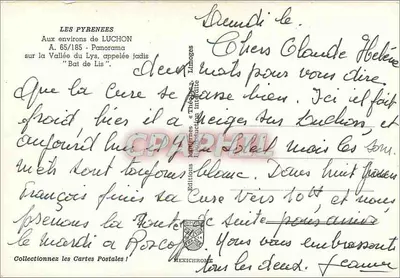 LES PYRENEES
Aux environs de LUCHON
A. 65/185 - Panorama
sur la Vallée du Lys, appelée jadis
"Bat de Lis"
Samedi le.
Chers Claude Helène
deux mots pour vous dire
Que la cure se passe bien. Ici il fait
froid hier il a neiger sur Luchon, et
aujourd'hui soleil mais les som
mets sont toujours blanc. Dans huit jours
François finis sa cure vers 10h et nous
prenons la route de suite pour
le mardi a Roscoff Nous vous embrassons
tous les deux. Jeanne
Editions modernes "Théojac", Limoges
Reproduction interdite
MEXICHROME
Collectionnez les Cartes Postales !